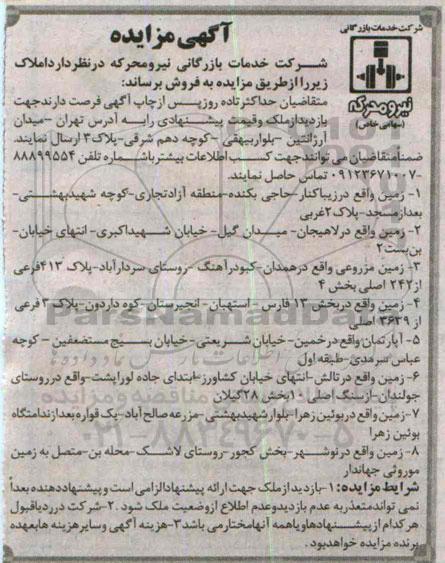 شرکت خدمات بازرگانی
نیرومحرکه
(سهامی خاص)
آگهی مزایده
شرکت خدمات بازرگانی نیرومحرکه درنظردارداملاک
زیررا ازطریق مزایده به فروش برساند:
متقاضیان حداکثرتاده روزپس ازچاپ آگهی فرصت دارندجهت
بازدیدازملک وقیمت پیشنهادی رابه آدرس تهران -میدان
آرژانتین -بلواربیهقی -کوچه دهم شرقی-پلاک۳ ارسال نمایند.
ضمنامتقاضیان می توانندجهت کسب اطلاعات بیشترباشماره تلفن ۸۸۸۹۹۵۵۴
-۰۹۱۲۳۶۷۱۰۰۷ تماس حاصل نمایند.
۱- زمین واقع درزیباکنار-حاجی بکنده-منطقه آزادتجاری-کوچه شهیدبهشتی-
بعدازمسجد-پلاک۲غربی
۲- زمین واقع درلاهیجان- میدان گیل- خیابان شهیداکبری- انتهای خیابان-
بن بست۲
۳- زمین مزروعی واقع درهمدان-کبودرآهنگ -روستای سردارآباد-پلاک ۴۱۳فرعی
از۲۴۷ اصلی بخش ۴
۴- زمین واقع دربخش ۱۳ فارس - استهبان- انجیرستان-کوه داردون-پلاک ۳ فرعی
از ۳۶۳۹ اصلی
۵- آپارتمان واقع درخمین-خیابان شریعتی-خیابان بسیج مستضعفین - کوچه
عباس سرمدی-طبقه اول
۶- زمین واقع درتالش-انتهای خیابان کشاورز-ابتدای جاده لوراپشت-واقع درروستای
جولندان-ازسنگ اصلی ۱۰ بخش ۲۸گیلان
۷-زمین واقع دربوئین زهرا-بلوارشهیدبهشتی -مزرعه صالح آباد-یک قواره بعدازندامتگاه
بوئین زهرا
۸- زمین واقع درنوشهر-بخش کجور-روستای لاشک-محله بن-متصل به زمین
موروثی جهاندار
شرایط مزایده: ۱-بازدیدازملک جهت ارائه پیشنهادالزامی است وپیشنهاددهنده بعداً
نمی تواندمتعذربه عدم بازدیدوعدم اطلاع ازوضعیت ملک شود .۲-شرکت درردیاقبول
هرکدام ازپیشنهادهاویاهمه آنهامختارمی باشد۳-هزینه آگهی وسایرهزینه هابعهده
برنده مزایده خواهدبود.
ParsNamadData
۰۲۱-۸۸۳۴۹۶۷۰-۵